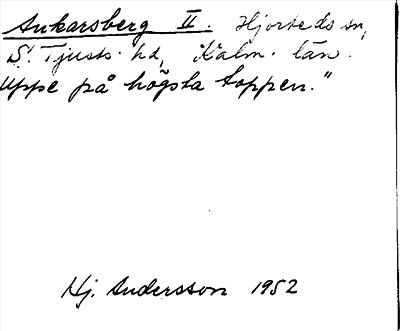 Ankarsberg II. Hjorteds sn,
S. Tjusts hd, Kalm. län.
Uppe på högsta toppen."
Hj. Andersson 1952